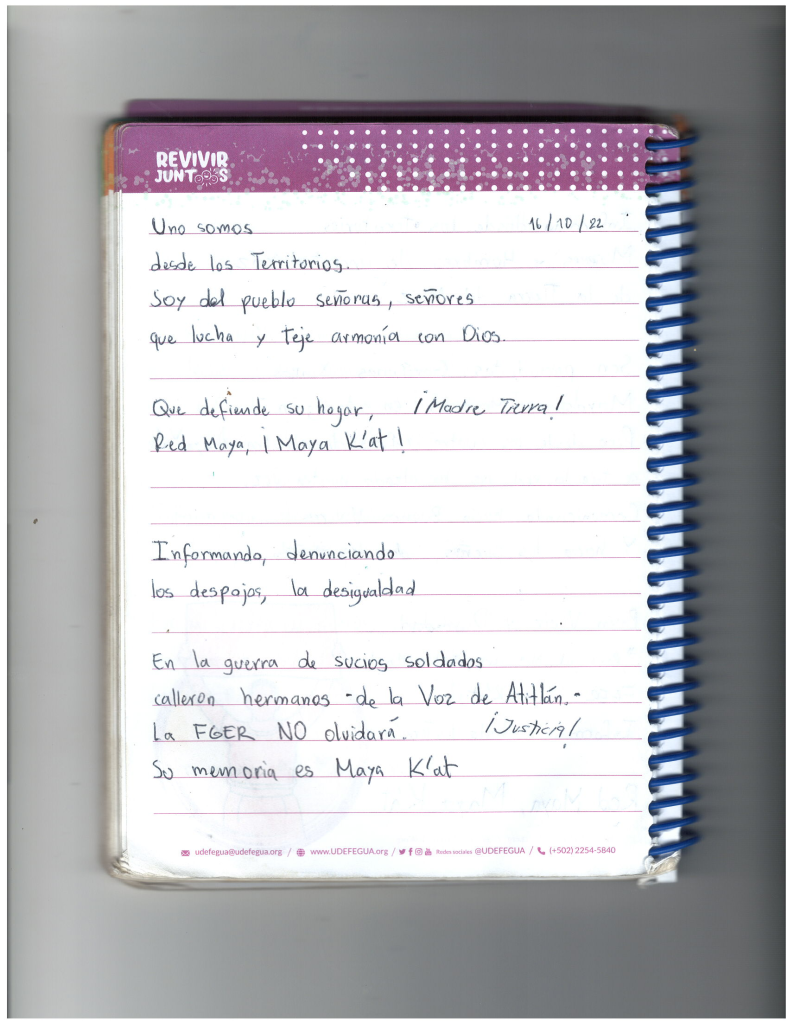 REVIVIR
JUNTOS
Uno somos 16/10/22
desde los Territorios.
Soy del pueblo señoras, señores
que lucha y teje armonía con Dios.
Que defiende su hogar, ¡Madre Tierra!
Red Maya, ¡Maya K'at!
Informando, denunciando
los despojos, la desigualdad
En la guerra de sucios soldados
calleron hermanos -de la Voz de Atitlán.-
La FGER NO olvidará. ¡Justicia!
Su memoria es Maya K'at
udefegua@udefegua.org / www.UDEFEGUA.org / Redes sociales @UDEFEGUA / (+502) 2254-5840